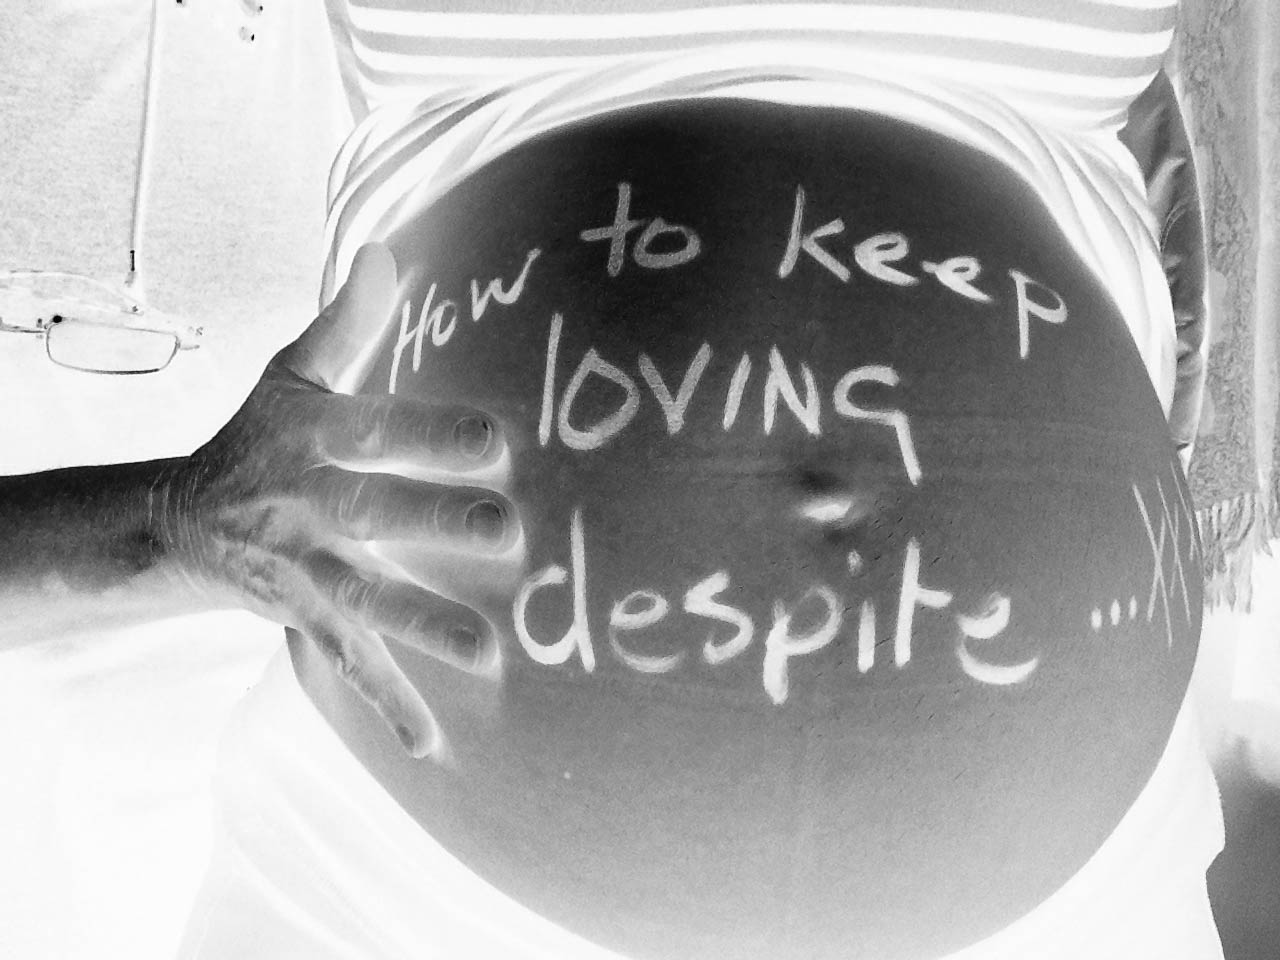 How to keep
lOVING
despite ...XXX